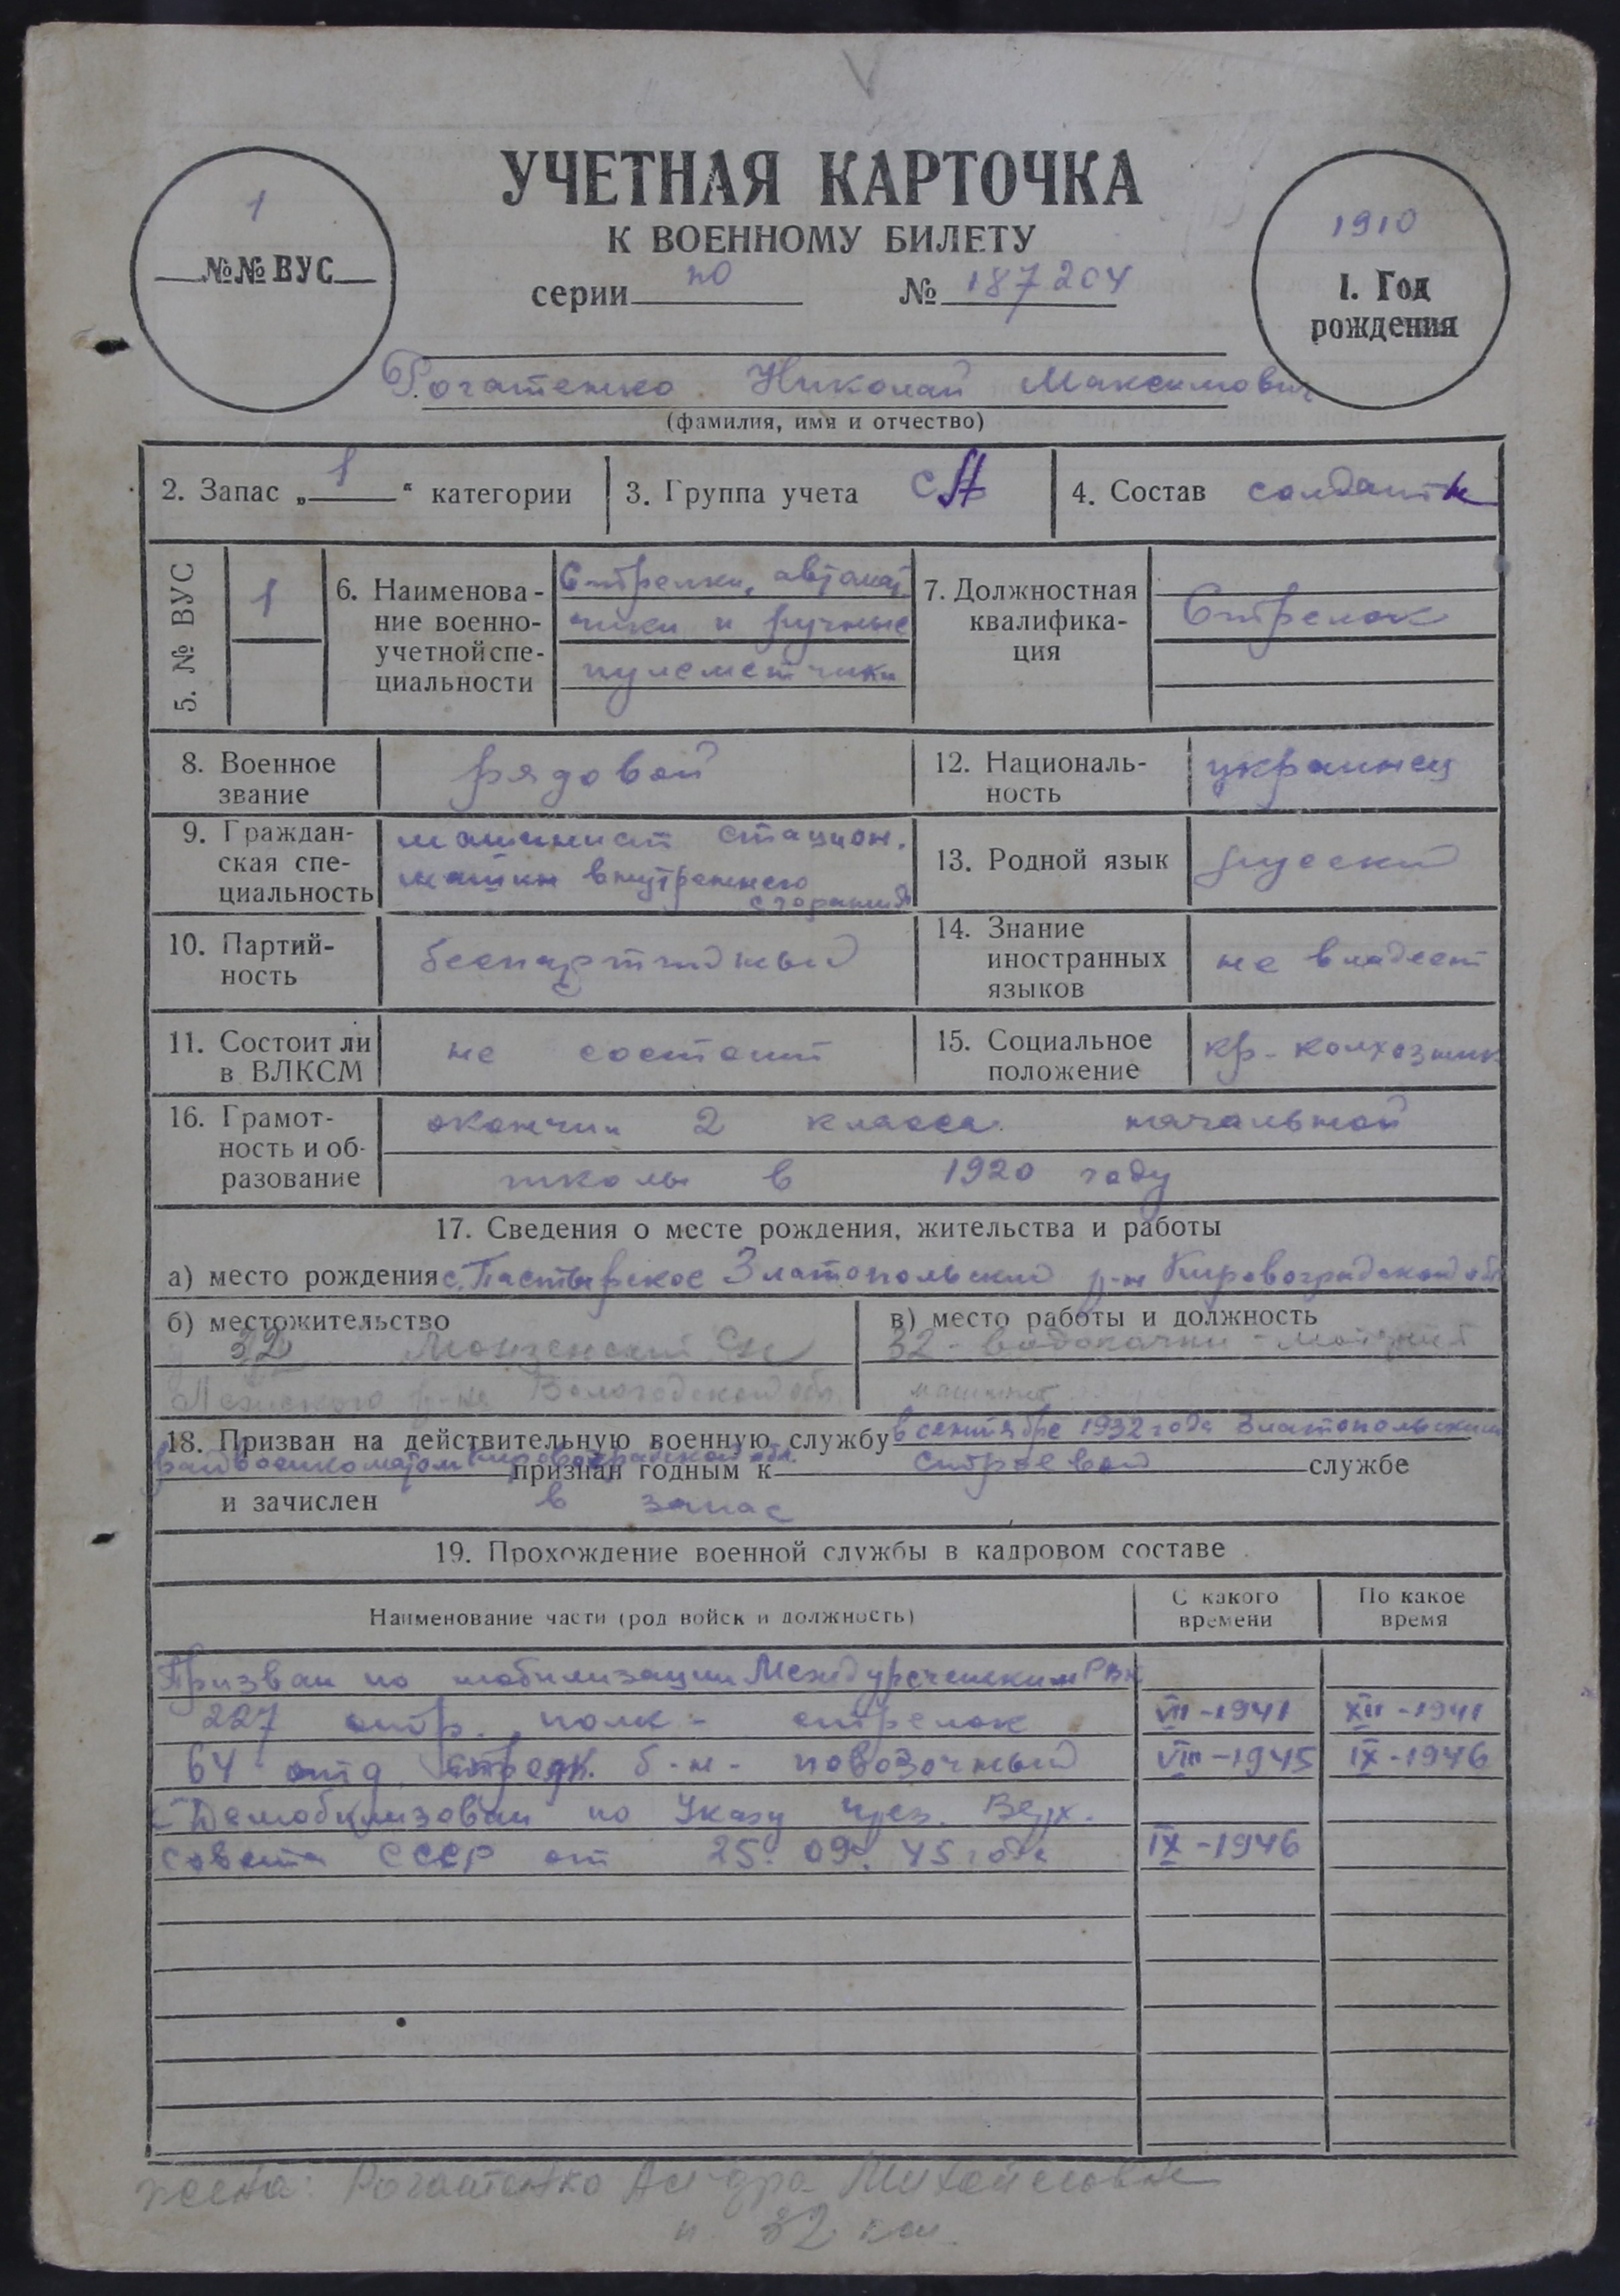 УЧЕТНАЯ КАРТОЧКА
К ВОЕННОМУ БИЛЕТУ
серии по № 187204
1
№№ ВУС
1910
1. Год
рождения
Рогатенко Николай Максимович
(фамилия, имя и отчество)
2. Запас „1“ категории
3. Группа учета СА
4. Состав солдаты
5. № ВУС
1
6. Наименова-
ние военно-
учетной спе-
циальности
Стрелки, автомат
чики и ручные
пулеметчики
7. Должностная
квалифика-
ция
Стрелок
8. Военное
звание
рядовой
12. Националь-
ность
украинец
9. Граждан-
ская спе-
циальность
машинист стацион.
машин внутреннего
сгорания
13. Родной язык
русский
10. Партий-
ность
беспартийный
14. Знание
иностранных
языков
не владеет
11. Состоит ли
в ВЛКСМ
не состоит
15. Социальное
положение
кр-колхозник
16. Грамот-
ность и об-
разование
окончил 2 класса начальной
школы в 1920 году
17. Сведения о месте рождения, жительства и работы
а) место рождения с. Пастырское Златопольский р-н Кировоградской обл
б) местожительство
32
р-на Вологодской обл.
в) место работы и должность
32 - водокачки
машинист
18. Призван на действительную военную службу в сентябре 1932 года Златопольским
райвоенкоматом Кировоградской обл. признан годным к строевой службе
и зачислен в запас
19. Прохождение военной службы в кадровом составе
Наименование части (род войск и должность)
С какого
времени
По какое
время
Призван по мобилизации Междуреченским РВК
227 стр. полк - стрелок VIII-1941 XII-1941
64 отд. стрелк. б-н - повозочный VIII-1945 IX-1946
Демобилизован по Указу през. Верх.
Совета СССР от 25.09.45 года IX-1946
жена: Рогатенко Ал-дра Михайловна
п. 32 км.